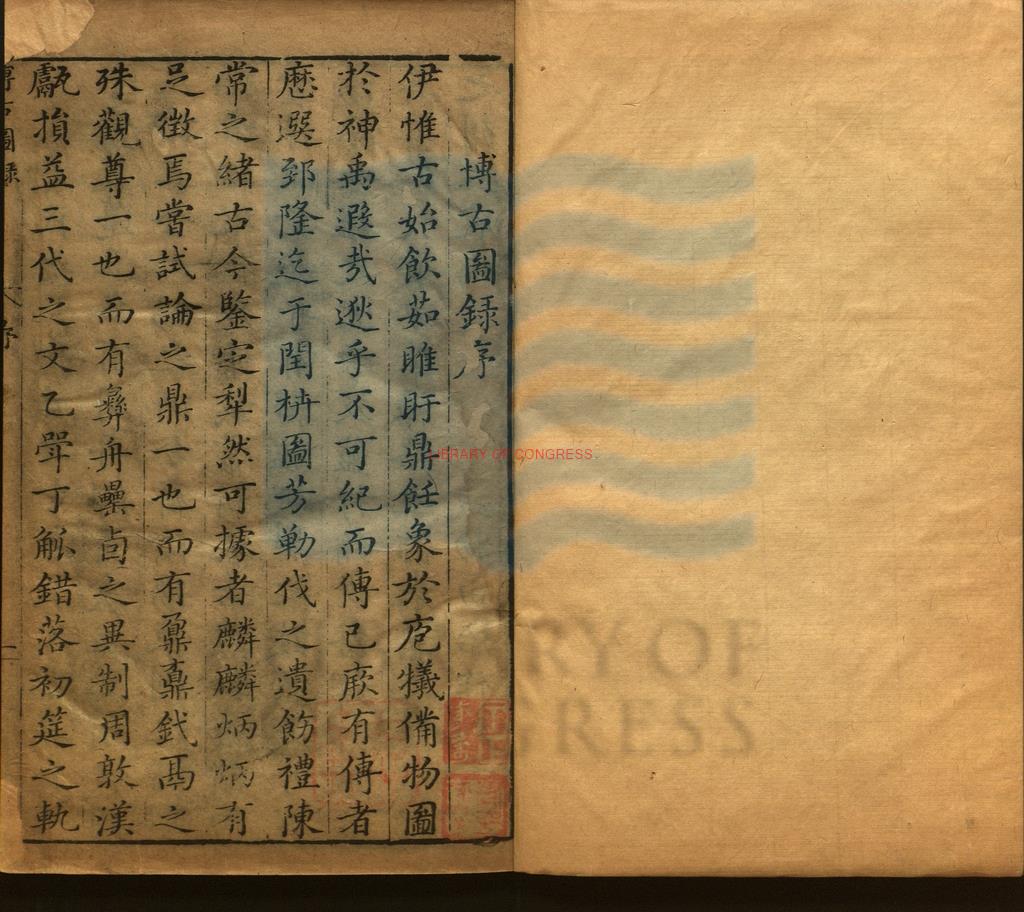 博古圖錄序
伊惟古始飲茹睢盱鼎飪象於庖犧備物圖
於神禹遐哉逖乎不可紀而傳已厥有傳者
歷選郅隆迄于閏枿圖芳勒伐之遺飭禮陳
常之緒古今鑒定犁然可據者麟麟炳炳有
足徵焉嘗試論之鼎一也而有鼐鼒釴鬲之
殊觀尊一也而有彝舟罍卣之異制周敦漢
甗損益三代之文乙斝丁觚錯落初筵之軌
博古圖錄
序
一
LIBRARY OF CONGRESS